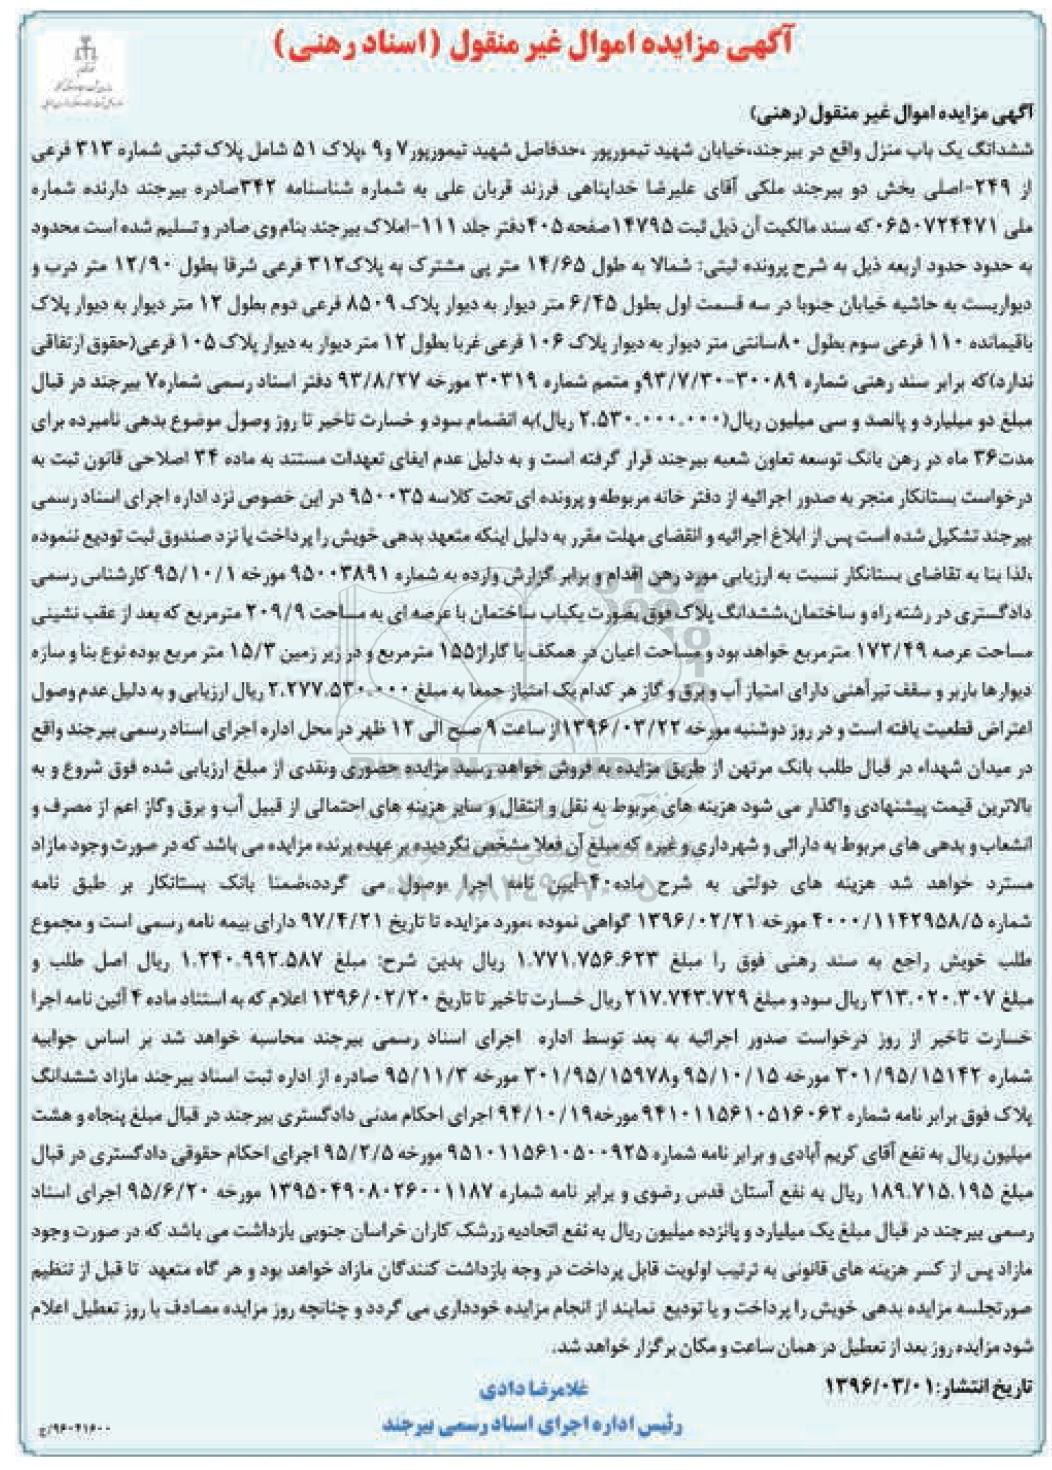 آگهی مزایده اموال غیر منقول (اسناد رهنی)
آگهی مزایده اموال غیر منقول (رهنی)
ششدانگ یک باب منزل واقع در بیرجند،خیابان شهید تیمورپور ،حدفاصل شهید تیمورپور۷ و۹ ،پلاک ۵۱ شامل پلاک ثبتی شماره ۳۱۳ فرعی
از ۲۴۹-اصلی بخش دو بیرجند ملکی آقای علیرضا خداپناهی فرزند قربان علی به شماره شناسنامه ۳۴۲صادره بیرجند دارنده شماره
ملی ۰۶۵۰۷۲۴۴۷۱که سند مالکیت آن ذیل ثبت ۱۴۷۹۵صفحه ۴۰۵دفتر جلد ۱۱۱-املاک بیرجند بنام وی صادر و تسلیم شده است محدود
به حدود حدود اربعه ذیل به شرح پرونده ثبتی: شمالا به طول ۱۴/۶۵ متر پی مشترک به پلاک۳۱۲ فرعی شرقا بطول ۱۲/۹۰ متر درب و
دیواریست به حاشیه خیابان جنوبا در سه قسمت اول بطول ۶/۴۵ متر دیوار به دیوار پلاک ۸۵۰۹ فرعی دوم بطول ۱۲ متر دیوار به دیوار پلاک
باقیمانده ۱۱۰ فرعی سوم بطول ۸۰سانتی متر دیوار به دیوار پلاک ۱۰۶ فرعی غربا بطول ۱۲ متر دیوار به دیوار پلاک ۱۰۵ فرعی(حقوق ارتفاقی
ندارد)که برابر سند رهنی شماره ۳۰۰۸۹-۹۳/۷/۳۰و متمم شماره ۳۰۳۱۹ مورخه ۹۳/۸/۲۷ دفتر اسناد رسمی شماره۷ بیرجند در قبال
مبلغ دو میلیارد و پانصد و سی میلیون ریال(۲.۵۳۰.۰۰۰.۰۰۰ ریال)به انضمام سود و خسارت تاخیر تا روز وصول موضوع بدهی نامبرده برای
مدت۳۶ ماه در رهن بانک توسعه تعاون شعبه بیرجند قرار گرفته است و به دلیل عدم ایفای تعهدات مستند به ماده ۳۴ اصلاحی قانون ثبت به
درخواست بستانکار منجر به صدور اجرائیه از دفتر خانه مربوطه و پرونده ای تحت کلاسه ۹۵۰۰۳۵ در این خصوص نزد اداره اجرای اسناد رسمی
بیرجند تشکیل شده است پس از ابلاغ اجرائیه و انقضای مهلت مقرر به دلیل اینکه متعهد بدهی خویش را پرداخت یا نزد صندوق ثبت تودیع ننموده
،لذا بنا به تقاضای بستانکار نسبت به ارزیابی مورد رهن اقدام و برابر گزارش وارده به شماره ۹۵۰۰۳۸۹۱ مورخه ۹۵/۱۰/۱ کارشناس رسمی
دادگستری در رشته راه و ساختمان،ششدانگ پلاک فوق بصورت یکباب ساختمان با عرصه ای به مساحت ۲۰۹/۹ مترمربع که بعد از عقب نشینی
مساحت عرصه ۱۷۲/۴۹ مترمربع خواهد بود و مساحت اعیان در همکف با گاراژ۱۵۵ مترمربع و در زیر زمین ۱۵/۳ متر مربع بوده نوع بنا و سازه
دیوارها باربر و سقف تیرآهنی دارای امتیاز آب و برق و گاز هر کدام یک امتیاز جمعا به مبلغ ۲.۲۷۷.۵۳۰.۰۰۰ ریال ارزیابی و به دلیل عدم وصول
اعتراض قطعیت یافته است و در روز دوشنبه مورخه ۱۳۹۶/۰۳/۲۲از ساعت ۹ صبح الی ۱۲ ظهر در محل اداره اجرای اسناد رسمی بیرجند واقع
در میدان شهداء در قبال طلب بانک مرتهن از طریق مزایده به فروش خواهد رسید مزایده حضوری ونقدی از مبلغ ارزیابی شده فوق شروع و به
بالاترین قیمت پیشنهادی واگذار می شود هزینه های مربوط به نقل و انتقال و سایر هزینه های احتمالی از قبیل آب و برق وگاز اعم از مصرف و
انشعاب و بدهی های مربوط به دارائی و شهرداری و غیره که مبلغ آن فعلا مشخص نگردیده بر عهده برنده مزایده می باشد که در صورت وجود مازاد
مسترد خواهد شد هزینه های دولتی به شرح ماده۴۰-آیین نامه اجرا موصول می گردد،ضمنا بانک بستانکار بر طبق نامه
شماره ۴۰۰۰/۱۱۴۲۹۵۸/۵ مورخه ۱۳۹۶/۰۲/۲۱ گواهی نموده ،مورد مزایده تا تاریخ ۹۷/۴/۲۱ دارای بیمه نامه رسمی است و مجموع
طلب خویش راجع به سند رهنی فوق را مبلغ ۱.۷۷۱.۷۵۶.۶۲۳ ریال بدین شرح: مبلغ ۱.۲۴۰.۹۹۲.۵۸۷ ریال اصل طلب و
مبلغ ۳۱۳.۰۲۰.۳۰۷ ریال سود و مبلغ ۲۱۷.۷۴۳.۷۲۹ ریال خسارت تاخیر تا تاریخ ۱۳۹۶/۰۲/۲۰ اعلام که به استناد ماده ۴ آئین نامه اجرا
خسارت تاخیر از روز درخواست صدور اجرائیه به بعد توسط اداره اجرای اسناد رسمی بیرجند محاسبه خواهد شد بر اساس جوابیه
شماره ۳۰۱/۹۵/۱۵۱۴۲ مورخه ۹۵/۱۰/۱۵ و۳۰۱/۹۵/۱۵۹۷۸ مورخه ۹۵/۱۱/۳ صادره از اداره ثبت اسناد بیرجند مازاد ششدانگ
پلاک فوق برابر نامه شماره ۹۴۱۰۱۱۵۶۱۰۵۱۶۰۶۲ مورخه۹۴/۱۰/۱۹ اجرای احکام مدنی دادگستری بیرجند در قبال مبلغ پنجاه و هشت
میلیون ریال به نفع آقای کریم آبادی و برابر نامه شماره ۹۵۱۰۱۱۵۶۱۰۵۰۰۹۲۵ مورخه ۹۵/۲/۵ اجرای احکام حقوقی دادگستری در قبال
مبلغ ۱۸۹.۷۱۵.۱۹۵ ریال به نفع آستان قدس رضوی و برابر نامه شماره ۱۳۹۵۰۴۹۰۸۰۲۶۰۰۱۱۸۷ مورخه ۹۵/۶/۲۰ اجرای اسناد
رسمی بیرجند در قبال مبلغ یک میلیارد و پانزده میلیون ریال به نفع اتحادیه زرشک کاران خراسان جنوبی بازداشت می باشد که در صورت وجود
مازاد پس از کسر هزینه های قانونی به ترتیب اولویت قابل پرداخت در وجه بازداشت کنندگان مازاد خواهد بود و هر گاه متعهد تا قبل از تنظیم
صورتجلسه مزایده بدهی خویش را پرداخت و یا تودیع نمایند از انجام مزایده خودداری می گردد و چنانچه روز مزایده مصادف با روز تعطیل اعلام
شود مزایده روز بعد از تعطیل در همان ساعت و مکان برگزار خواهد شد.
تاریخ انتشار:۱۳۹۶/۰۳/۰۱
غلامرضا دادی
رئیس اداره اجرای اسناد رسمی بیرجند
۹۶۰۲۱۶۰۰/ج